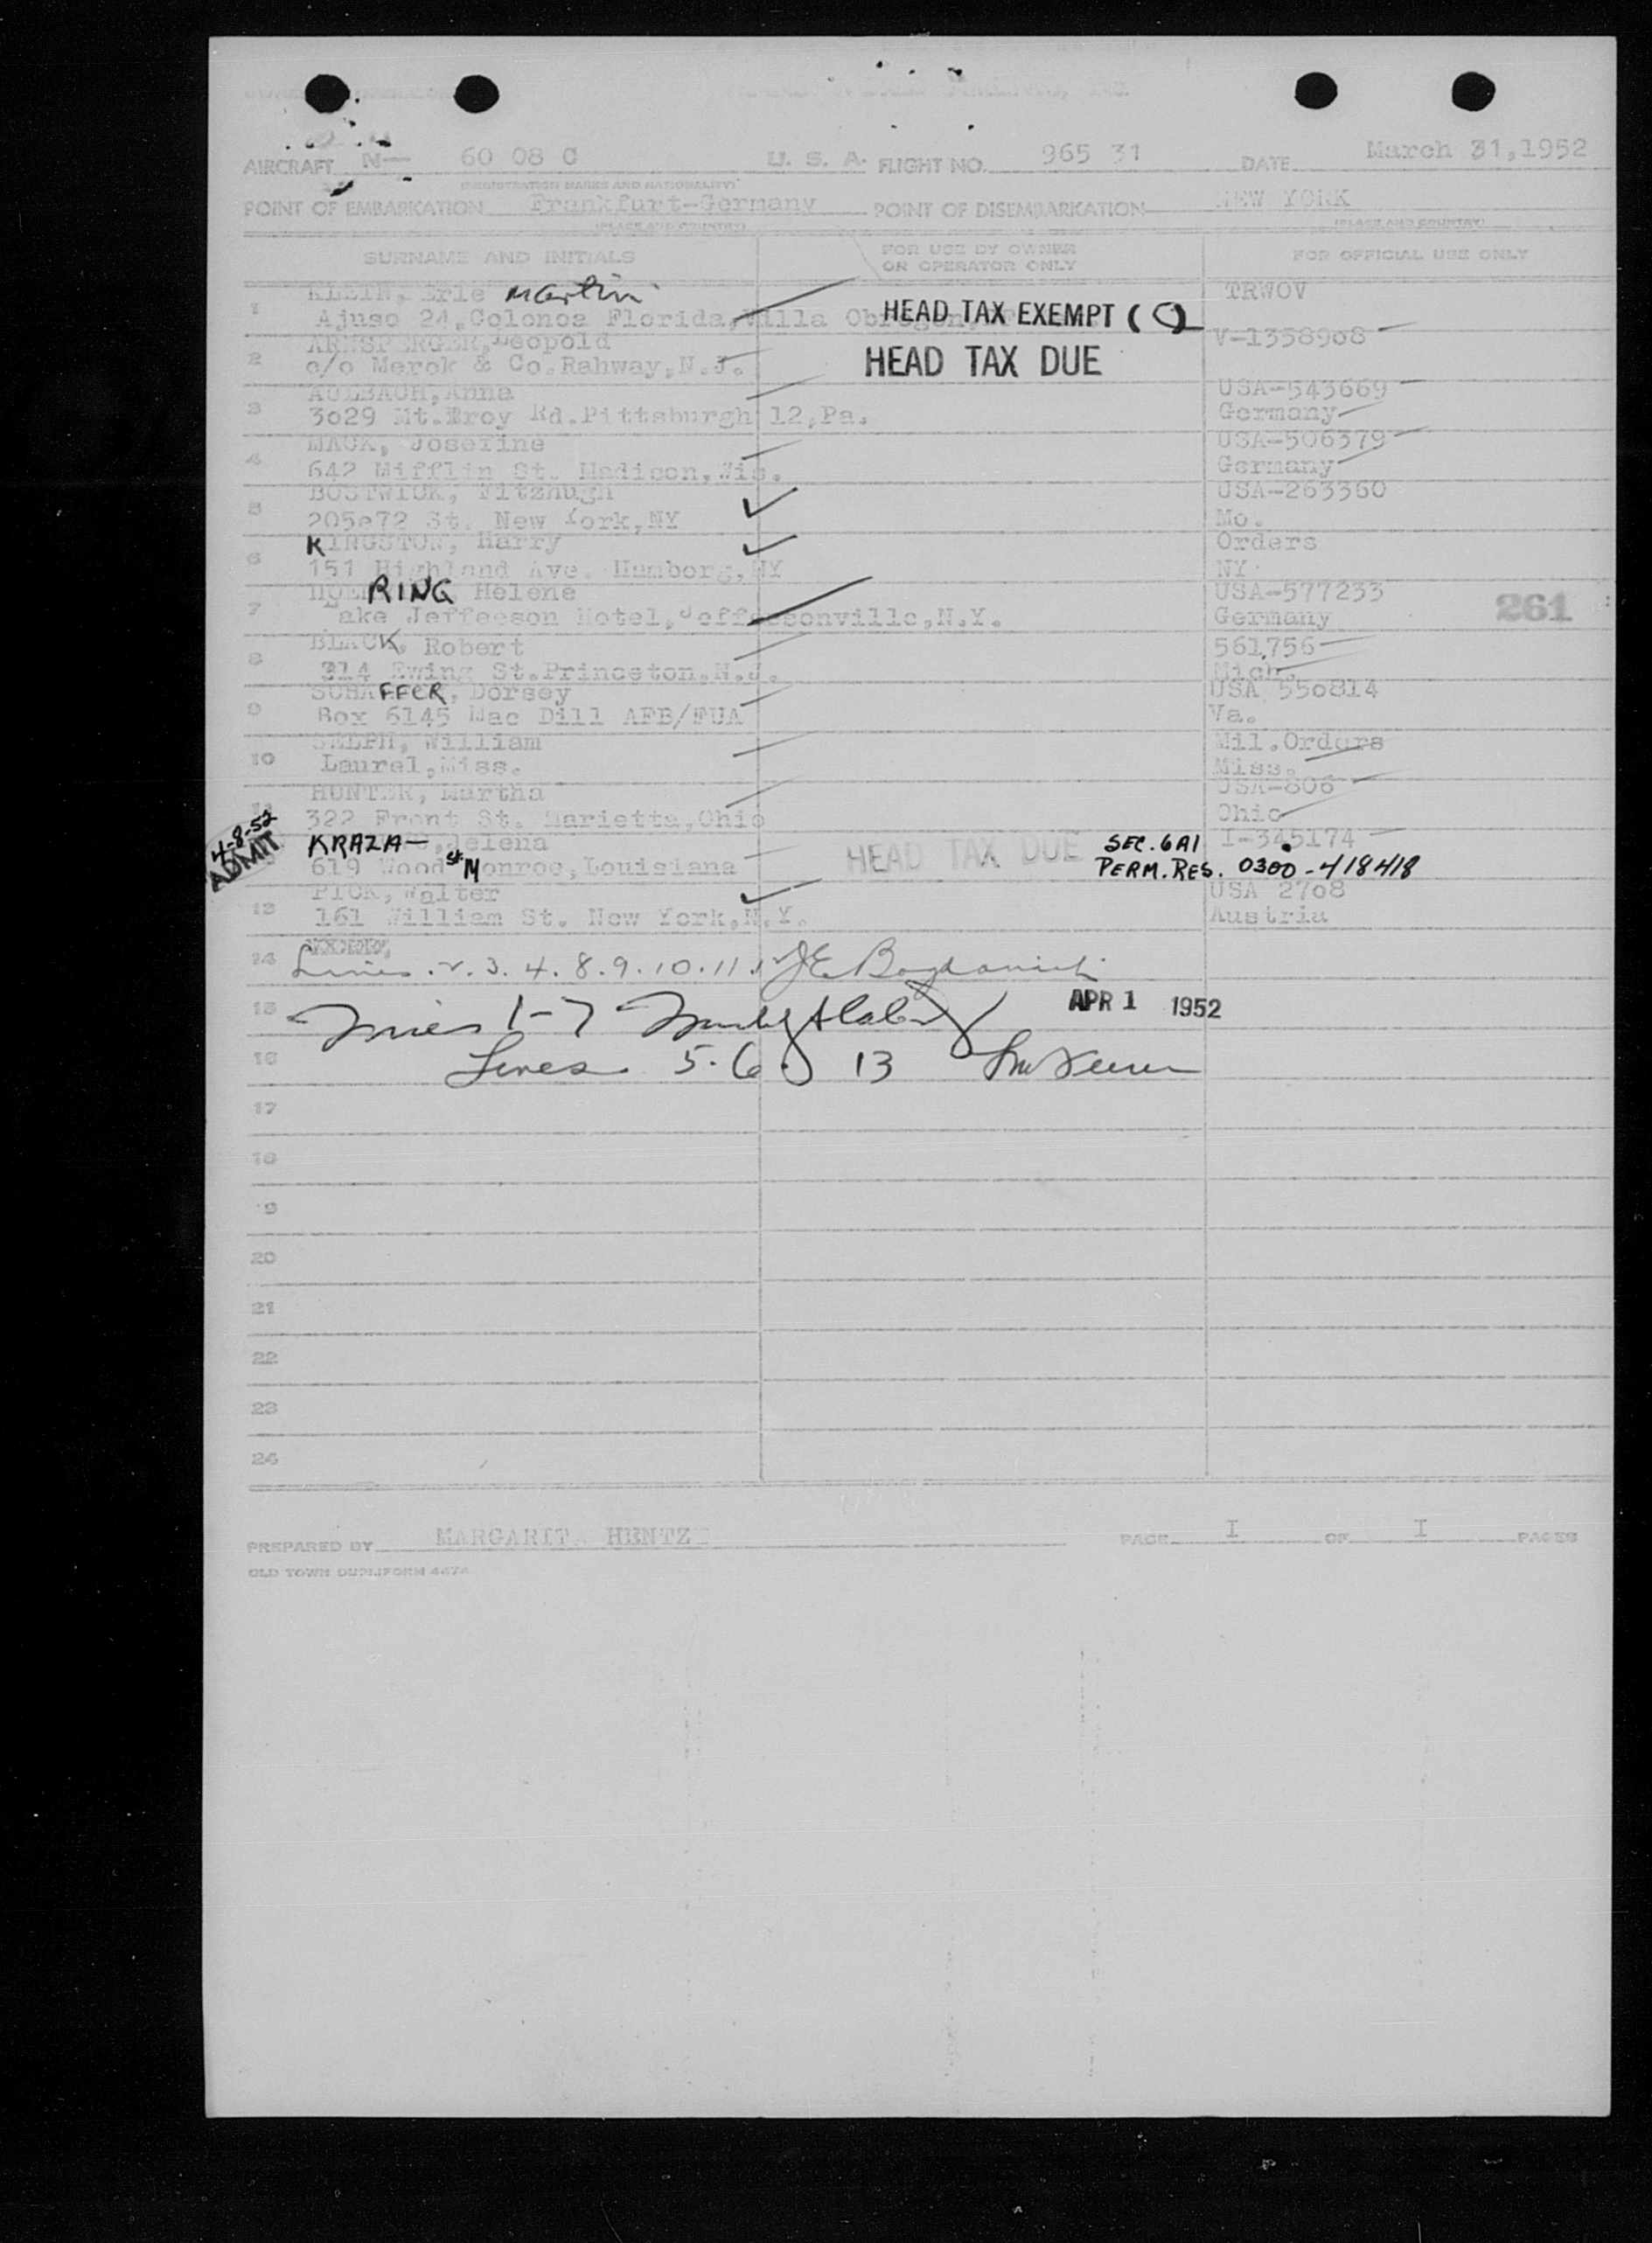 AIRCRAFT N— 60 08 C U. S. A. FLIGHT NO. 965 31 DATE March 31,1952
(REGISTRATION MARKS AND NATIONALITY)
POINT OF EMBARKATION Frankfurt-Germany POINT OF DISEMBARKATION NEW YORK
(PLACE AND COUNTRY) (PLACE AND COUNTRY)
SURNAME AND INITIALS FOR USE BY OWNER OR OPERATOR ONLY FOR OFFICIAL USE ONLY
1 KLEIN, Erle Martin TRWOV
Ajuso 24, Colonoa Florida, Villa Obregon, HEAD TAX EXEMPT (
2 Leopold V-1358908
c/o Merck & Co. Rahway, N.J. HEAD TAX DUE
3 AULBACH, Anna USA-543669
3029 Mt. Troy Rd. Pittsburgh 12, Pa. Germany
4 MACK, Josefine USA-506379
642 Mifflin St. Madison, Wis. Germany
5 BOSTWICK, Fitzhugh USA-263360
205e72 St. New York, NY Mo.
6 KINGSTON, Harry Orders
151 Highland Ave. Hamborg, NY NY
7 RING Helene USA-577233
Lake Jeffeeson Hotel, Jeffersonville, N.Y. Germany 261
8 BLACK, Robert 561,756
314 Ewing St. Princeton, N.J. Mich.
9 SCHAFFER, Dorsey USA 550814
Box 6145 Mac Dill AFB/FUA Va.
10 SELPH, William Mil. Orders
Laurel, Miss. Miss.
11 HUNTER, Martha USA-806
322 Front St. Marietta, Ohio Ohio
4-8-52 KRAZA—, Helena SEC. 6A1 I-345174
ADMIT 619 Wood St Monroe, Louisiana HEAD TAX DUE PERM. RES. 0300-418418
13 PICK, Walter USA 2708
161 William St. New York, N.Y. Austria
14
Lines . 2. 3. 4. 8. 9. 10. 11.
15 Lines 1-7 APR 1 1952
16 Lines 5. 6. 13
17
18
19
20
21
22
23
24
PREPARED BY MARGARITA HENTZ PAGE I OF I PAGES
OLD TOWN DUPLIFORM 447A